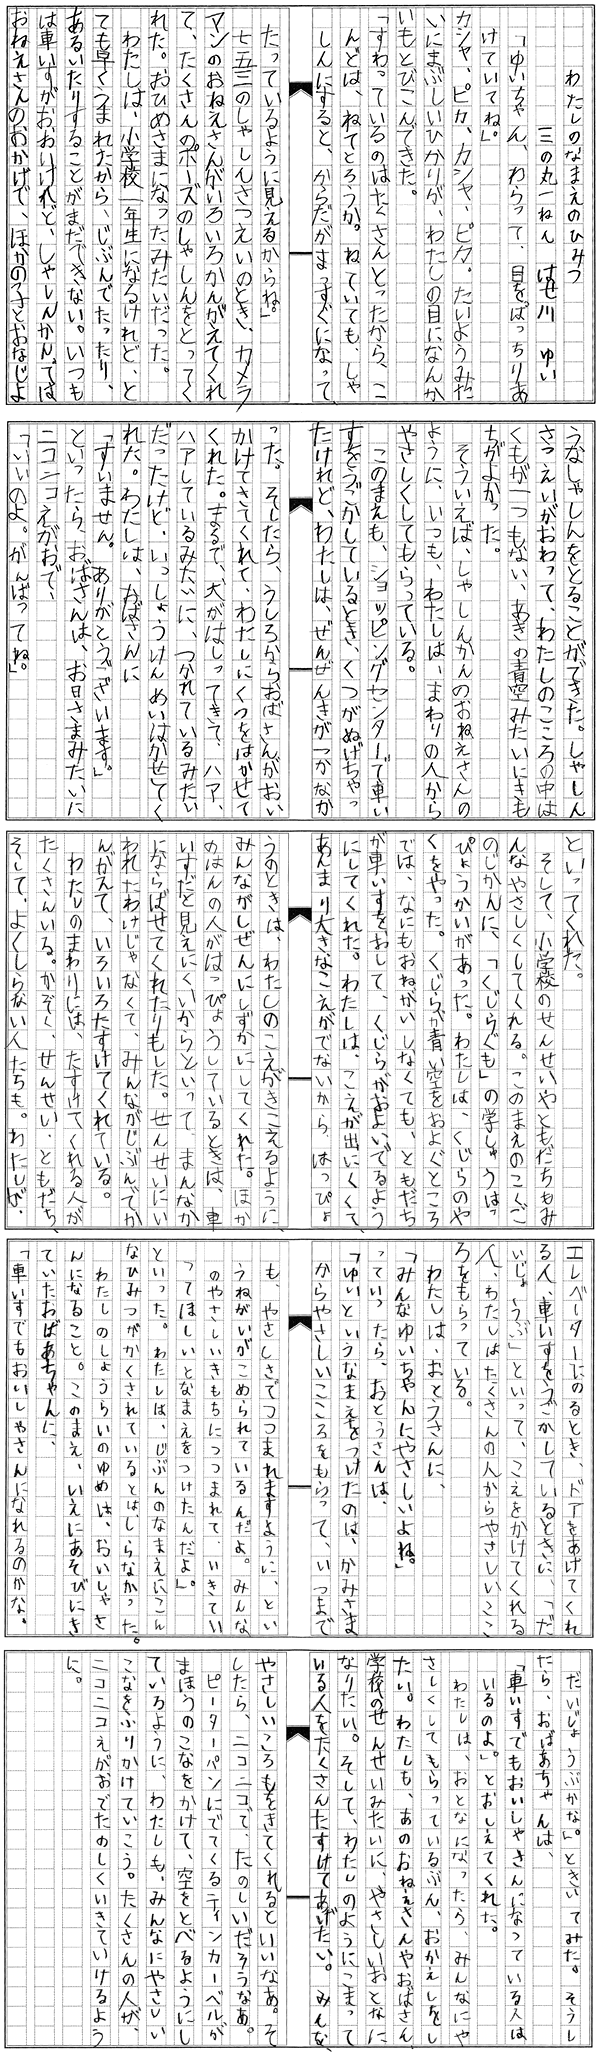 わたしのなまえのひみつ
三の丸一ねん　はせ川　ゆい
「ゆいちゃん、わらって、目をぱっちりあ
けていてね。」
カシャ、ピカ、カシャ、ピカ。たいようみた
いにまぶしいひかりが、わたしの目になんか
いもとびこんできた。
「すわっているのはたくさんとったから、こ
んどは、ねてとろうか。ねていても、しゃ
しんにすると、からだがまっすぐになって、
たっているように見えるからね。」
七五三のしゃしんさつえいのとき、カメラ
マンのおねえさんがいろいろかんがえてくれ
て、たくさんのポーズのしゃしんをとってく
れた。おひめさまになったみたいだった。
わたしは、小学校一年生になるけれど、と
ても早くうまれたから、じぶんでたったり、
あるいたりすることがまだできない。いつも
は車いすがおおいけれど、しゃしんかんでは
おねえさんのおかげで、ほかの子とおなじよ
うなしゃしんをとることができた。しゃしん
さつえいがおわって、わたしのこころの中は
くもが一つもない、あきの青空みたいにきも
ちがよかった。
そういえば、しゃしんかんのおねえさんの
ように、いつも、わたしは、まわりの人から
やさしくしてもらっている。
このまえも、ショッピングセンターで車い
すをうごかしているとき、くつがぬげちゃっ
たけれど、わたしは、ぜんぜんきがつかなか
った。そしたら、うしろからおばさんがおい
かけてきてくれて、わたしにくつをはかせて
くれた。まるで、犬がはしってきて、ハア、
ハアしているみたいに、つかれているみたい
だったけど、いっしょうけんめいはかせてく
れた。わたしは、おばさんに
「すいません。ありがとうございます。」
といったら、おばさんは、お日さまみたいに
ニコニコえがおで、
「いいのよ。がんばってね。」
といってくれた。
そして、小学校のせんせいやともだちもみ
んなやさしくしてくれる。このまえのこくご
のじかんに、「くじらぐも」の学しゅうはっ
ぴょうかいがあった。わたしは、くじらのや
くをやった。くじらが青い空をおよぐところ
では、なにもおねがいしなくても、ともだち
が車いすをおして、くじらがおよいでるよう
にしてくれた。わたしは、こえが出にくくて、
あんまり大きなこえがでないから、はっぴょ
うのときは、わたしのこえがきこえるように、
みんながしぜんにしずかにしてくれた。ほか
のはんの人がはっぴょうしているときは、車
いすだと見えにくいからといって、まんなか
にならばせてくれたりもした。せんせいにい
われたわけじゃなくて、みんながじぶんでか
んがえて、いろいろたすけてくれている。
わたしのまわりには、たすけてくれる人が
たくさんいる。かぞく、せんせい、ともだち、
そして、よくしらない人たちも。わたしが、
エレベーターにのるとき、ドアをあけてくれ
る人、車いすをうごかしているときに、「だ
いじょうぶ」といって、こえをかけてくれる
人、わたしはたくさんの人からやさしいここ
ろをもらっている。
わたしは、おとうさんに、
「みんなゆいちゃんにやさしいよね。」
っていったら、おとうさんは、
「ゆいというなまえをつけたのは、かみさま
からやさしいこころをもらって、いつまで
も、やさしさでつつまれますように、とい
うねがいがこめられているんだよ。みんな
のやさしいきもちにつつまれて、いきてい
ってほしいとなまえをつけたんだよ」。
といった。わたしは、じぶんのなまえにこん
なひみつがかくされているとは、しらなかった。
わたしのしょうらいのゆめは、おいしゃさ
んになること。このまえ、いえにあそびにき
ていたおばあちゃんに、
「車いすでもおいしゃさんになれるのかな。
だいじょうぶかな。」ときいてみた。そうし
たら、おばあちゃんは、
「車いすでもおいしゃさんになっている人は
いるのよ。」とおしえてくれた。
わたしは、おとなになったら、みんなにや
さしくしてもらっているぶん、おかえしをし
たい。わたしも、あのおねえさんやおばさん、
学校のせんせいみたいに、やさしいおとなに
なりたい。そして、わたしのようにこまって
いる人をたくさんたすけてあげたい。みんな、
やさしいころもをきてくれるといいなあ。そ
したら、ニコニコで、たのしいだろうなあ。
ピーターパンにでてくるティンカーベルが
まほうのこなをかけて、空をとべるようにし
ているように、わたしも、みんなにやさしい
こなをふりかけていこう。たくさんの人が、
ニコニコえがおでたのしくいきていけるよう
に。